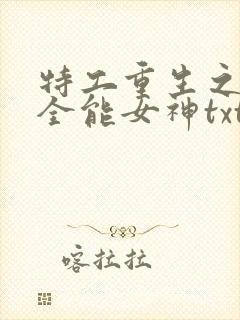 特工重生之
全能女神txt
喀拉拉